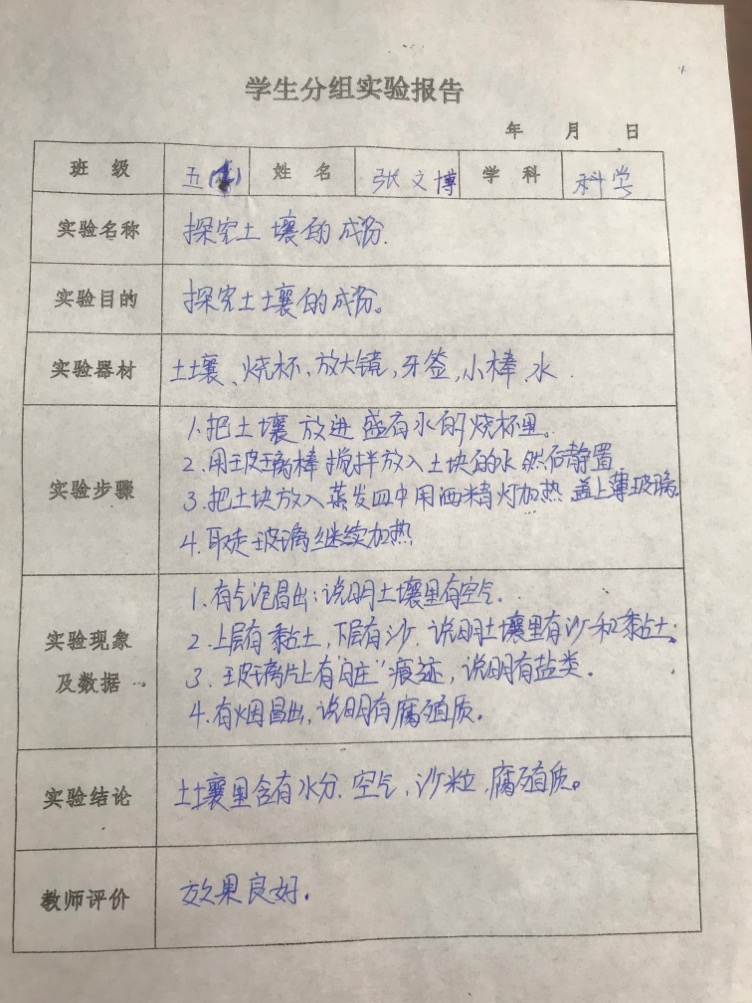 学生分组实验报告
年 月 日
班 级 五( ) 姓 名 张文博 学 科 科学
实验名称 探究土壤的成份.
实验目的 探究土壤的成份。
实验器材 土壤、烧杯、放大镜,牙签,小棒、水
实验步骤
1.把土壤放进盛有水的烧杯里。
2.用玻璃棒搅拌放入土块的水 然后静置
3.把土块放入蒸发皿中用酒精灯加热 盖上薄玻璃。
4.取走玻璃继续加热
实验现象及数据
1.有气泡冒出:说明土壤里有空气.
2.上层有黏土,下层有沙.说明土壤里有沙和黏土.
3.玻璃片上有 痕迹,说明有盐类.
4.有烟冒出,说明有腐殖质.
实验结论 土壤里含有水分.空气,沙粒,腐殖质。
教师评价 效果良好.